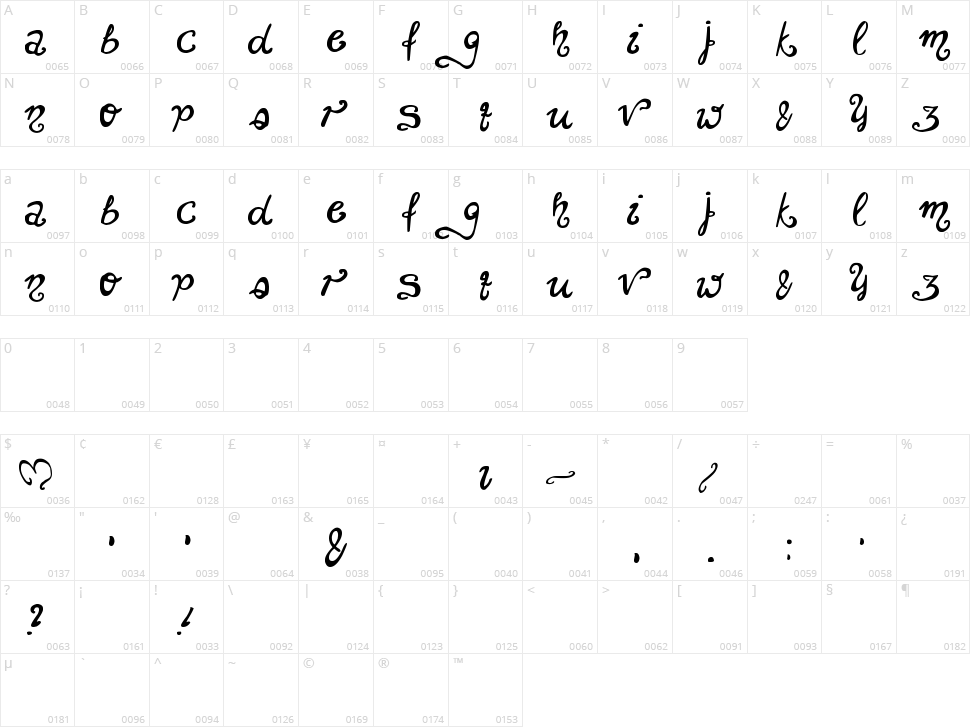 A B C D E F G H I J K L M
a b c d e f g h i j k l m
0065 0066 0067 0068 0069 0070 0071 0072 0073 0074 0075 0076 0077
N O P Q R S T U V W X Y Z
n o p q r s t u v w x y z
0078 0079 0080 0081 0082 0083 0084 0085 0086 0087 0088 0089 0090
a b c d e f g h i j k l m
a b c d e f g h i j k l m
0097 0098 0099 0100 0101 0102 0103 0104 0105 0106 0107 0108 0109
n o p q r s t u v w x y z
n o p q r s t u v w x y z
0110 0111 0112 0113 0114 0115 0116 0117 0118 0119 0120 0121 0122
0 1 2 3 4 5 6 7 8 9
0048 0049 0050 0051 0052 0053 0054 0055 0056 0057
$ ¢ € £ ¥ ¤ + - * / ÷ = %
ı - /
0036 0162 0128 0163 0165 0164 0043 0045 0042 0047 0247 0061 0037
‰ " ' @ & _ ( ) , . ; : ¿
' ' & , . : '
0137 0034 0039 0064 0038 0095 0040 0041 0044 0046 0059 0058 0191
? ¡ ! \ | { } < > [ ] § ¶
? !
0063 0161 0033 0092 0124 0123 0125 0060 0062 0091 0093 0167 0182
µ ` ^ ~ © ® ™
0181 0096 0094 0126 0169 0174 0153